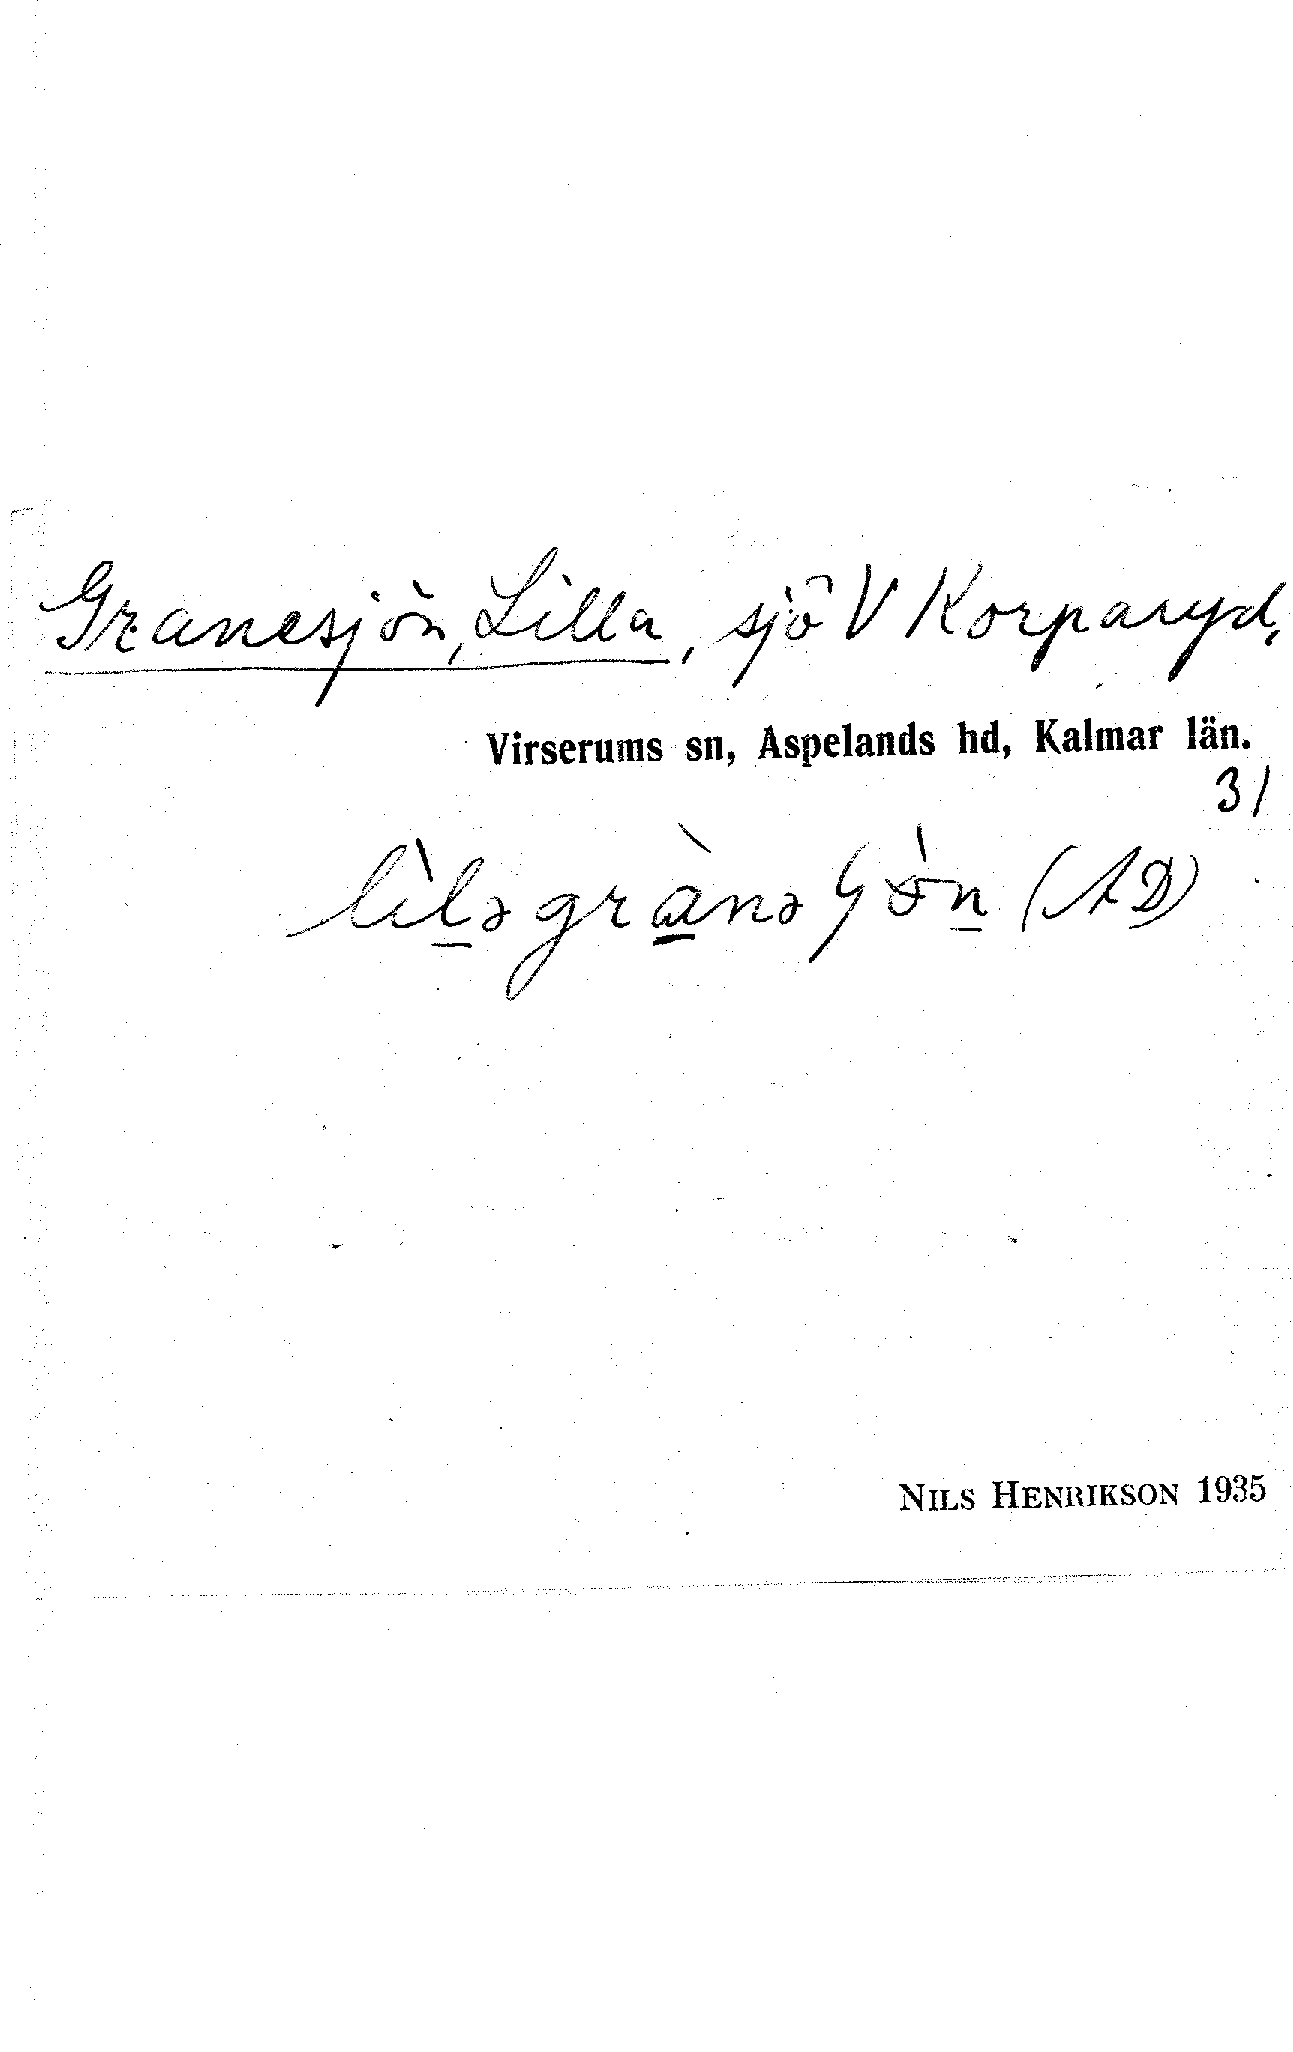 Granesjön, Lilla, sjö V Korparyd,
Virserums sn, Aspelands hd, Kalmar län.
31
(AD)
NILS HENRIKSON 1935